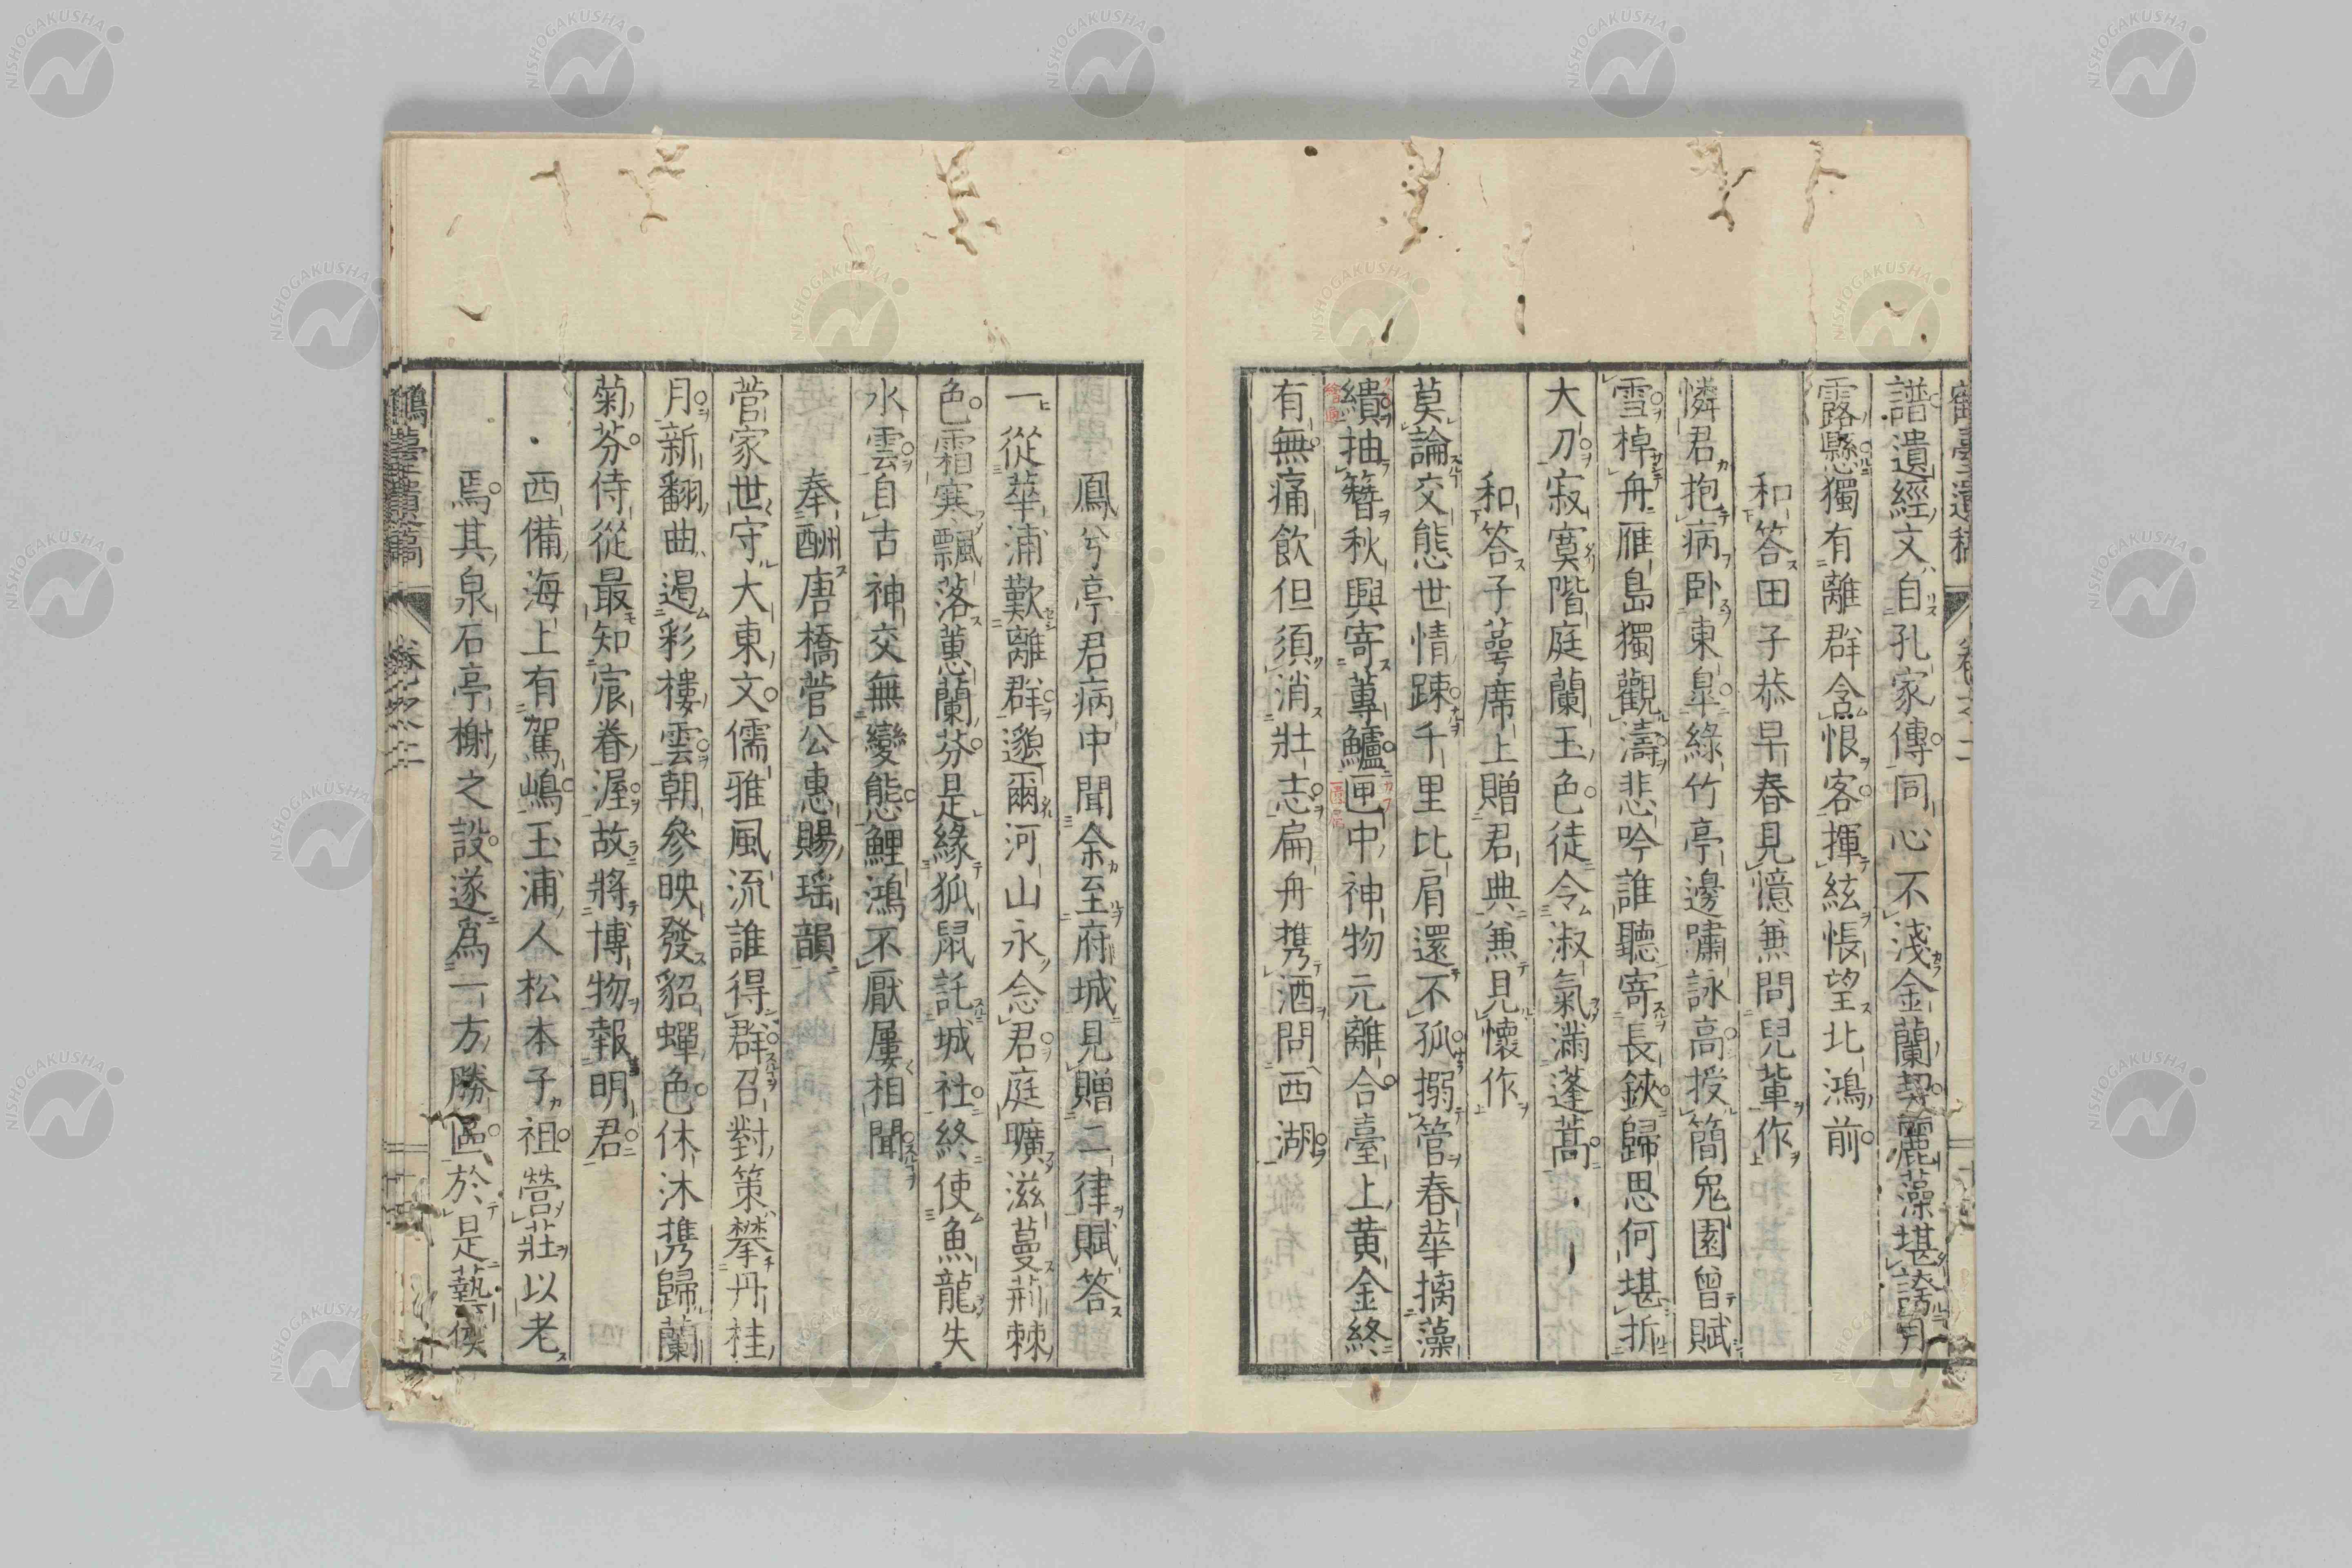 譜遺經文自孔家傳同心不淺金蘭契麗藻堪誇月
露懸獨有離群含恨客揮絃悵望北鴻前
和答田子恭早春見憶兼問兒輩作
憐君抱病卧東皐綠竹亭邊嘯詠高授簡兔園曾賦
雪棹舟雁島獨觀濤悲吟誰聽寄長鋏歸思何堪折
大刀寂寞階庭蘭玉色徒令淑氣滿蓬蒿
和答子蕚席上贈君典兼見懷作
莫論交態世情踈千里比肩還不孤搦管春華摛藻
繢抽簪秋興寄蓴鱸匣中神物元離合臺上黃金終
有無痛飲但須消壯志扁舟携酒問西湖
鳳兮亭君病中聞余至府城見贈二律賦答
一從華浦歎離群邈爾河山永念君庭曠滋蔓荊棘
色霜寒飄落蕙蘭芬是緣狐鼠託城社終使魚龍失
水雲自古神交無變態鯉鴻不厭屢相聞
奉酬唐橋菅公惠賜瑶韻
菅家世守大東文儒雅風流誰得群召對策攀丹桂
月新翻曲遏彩樓雲朝參映發貂蟬色休沐携歸蘭
菊芬侍從最知宸眷渥故將博物報明君
西備海上有駕嶋玉浦人松本子祖營莊以老
焉其泉石亭榭之設遂爲一方勝區於是藝侯
鶴臺遺稿 卷之二
NISHOGAKUSHA